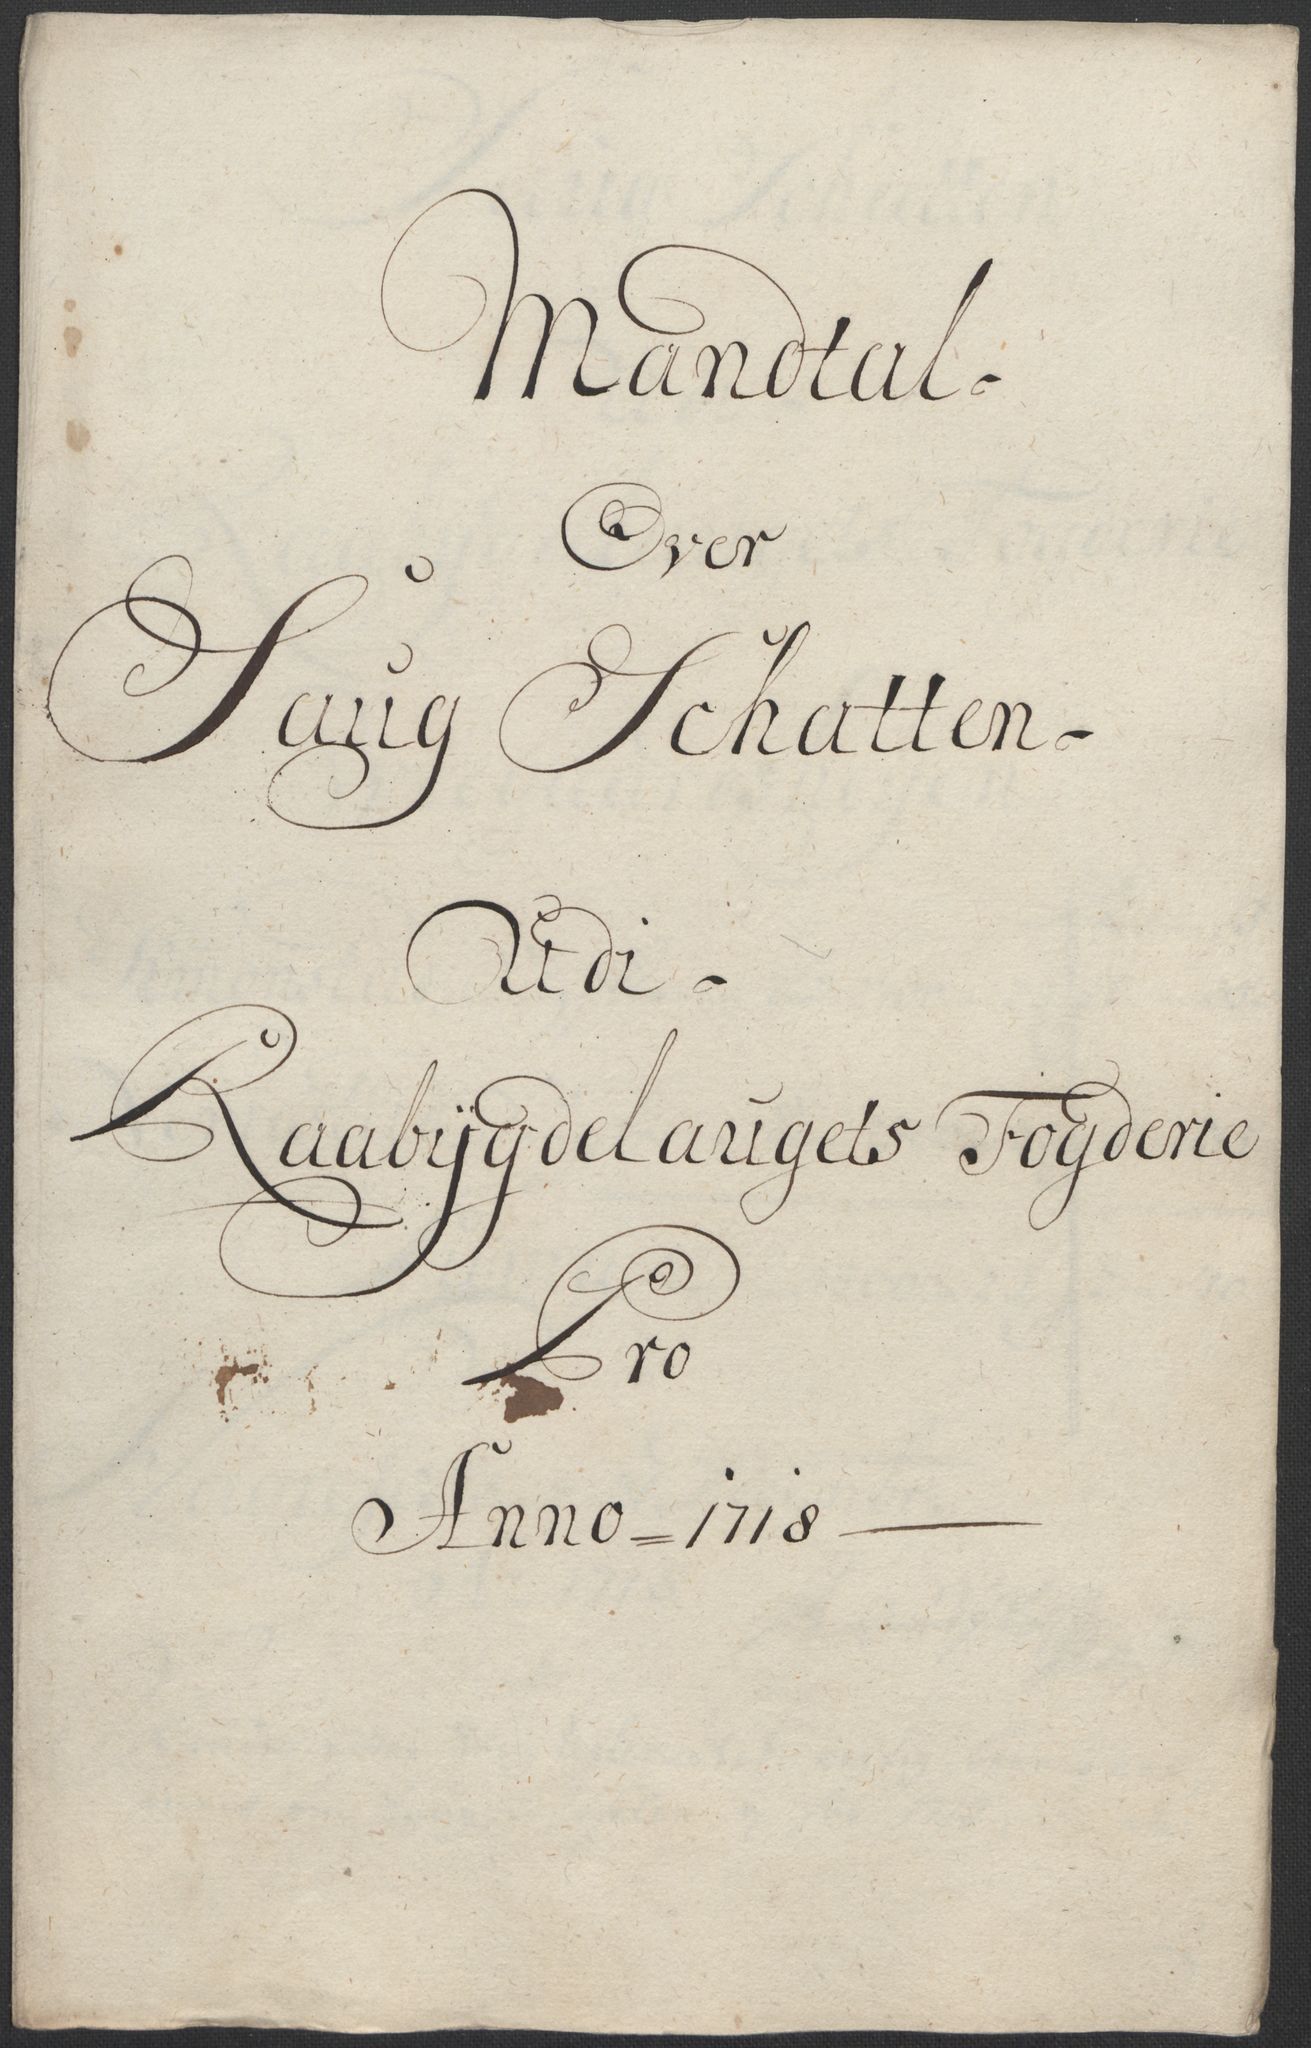 Mandtal-
Over
Saug Schatten-
Udi-
Raabÿgdelaugets Fogderie
Pro
Anno = 1718 —